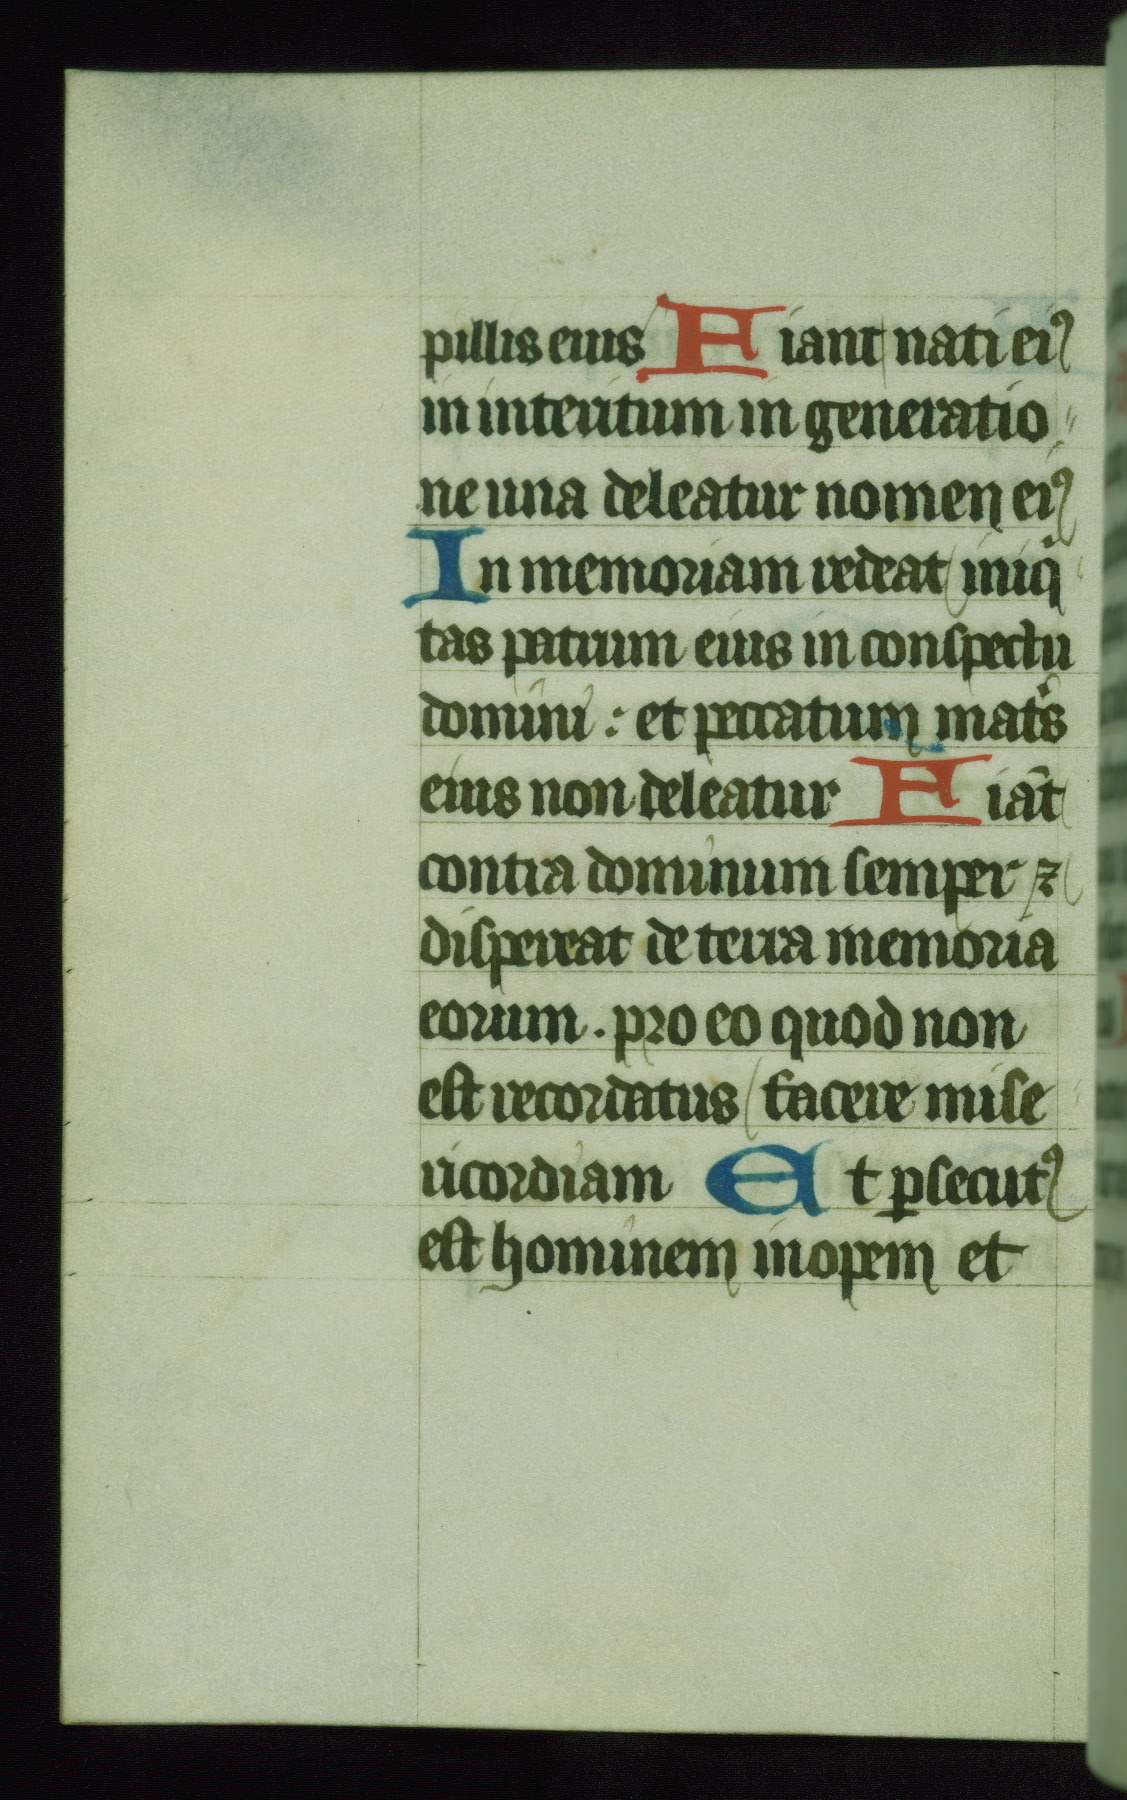 pillis eius Fiant nati eiꝰ
in interitum in generatio
ne una deleatur nomen eiꝰ
In memoriam redeat iniqͥ
tas patrum eius in conspectu
domini : et peccatum mat̉s
eius non deleatur Fiāt
contra dominum semper ⁊
dispereat de terra memoria
eorum . pro eo quod non
est recordatus facere mise
ricordiam Et ꝑsecutꝰ
est hominem inopem et